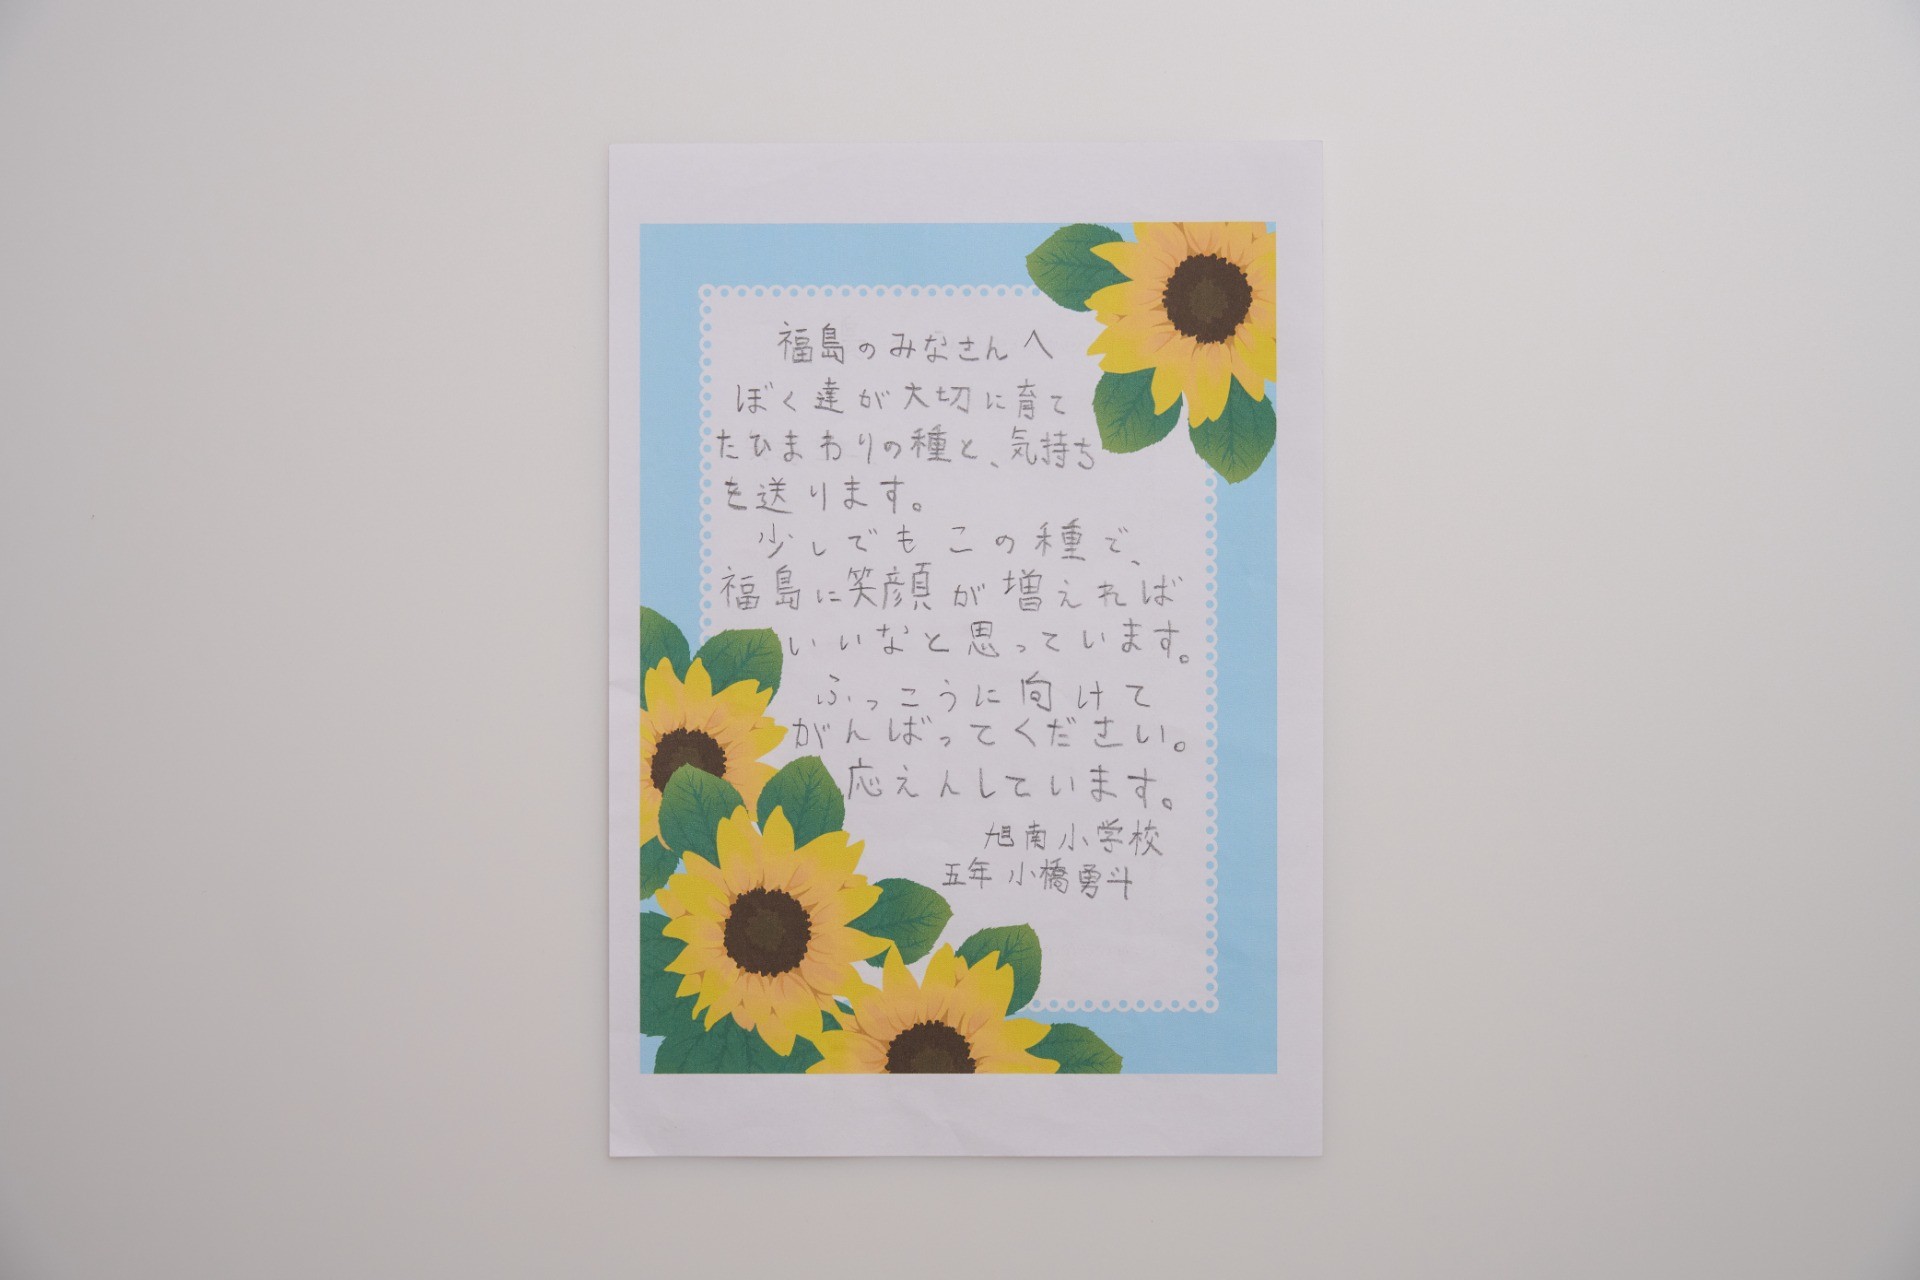 福島のみなさんへ
ぼく達が大切に育て
たひまわりの種と、気持ち
を送ります。
少しでもこの種で、
福島に笑顔が増えれば
いいなと思っています。
ふっこうに向けて
がんばってください。
応えんしています。
旭南小学校
五年 小橋勇斗